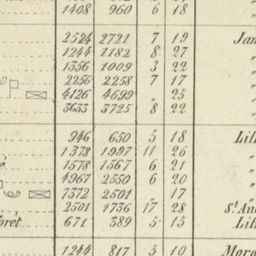 1408 960 6 18
2524 2721 7 19 Jan
1244 1182 8 27
1356 1009 3 22
2256 2258 7 17
4126 4699 " 25
3653 3725 8 22
946 650 5 18 Lill
1378 1997 11 26 "
1578 1567 6 21 "
4967 2550 6 20 "
7372 2501 17 "
2501 1736 17 28 St. An
oret 671 389 5 15 Lill
1244 817 5 10 More